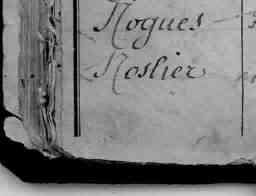 Nogues
Noslier